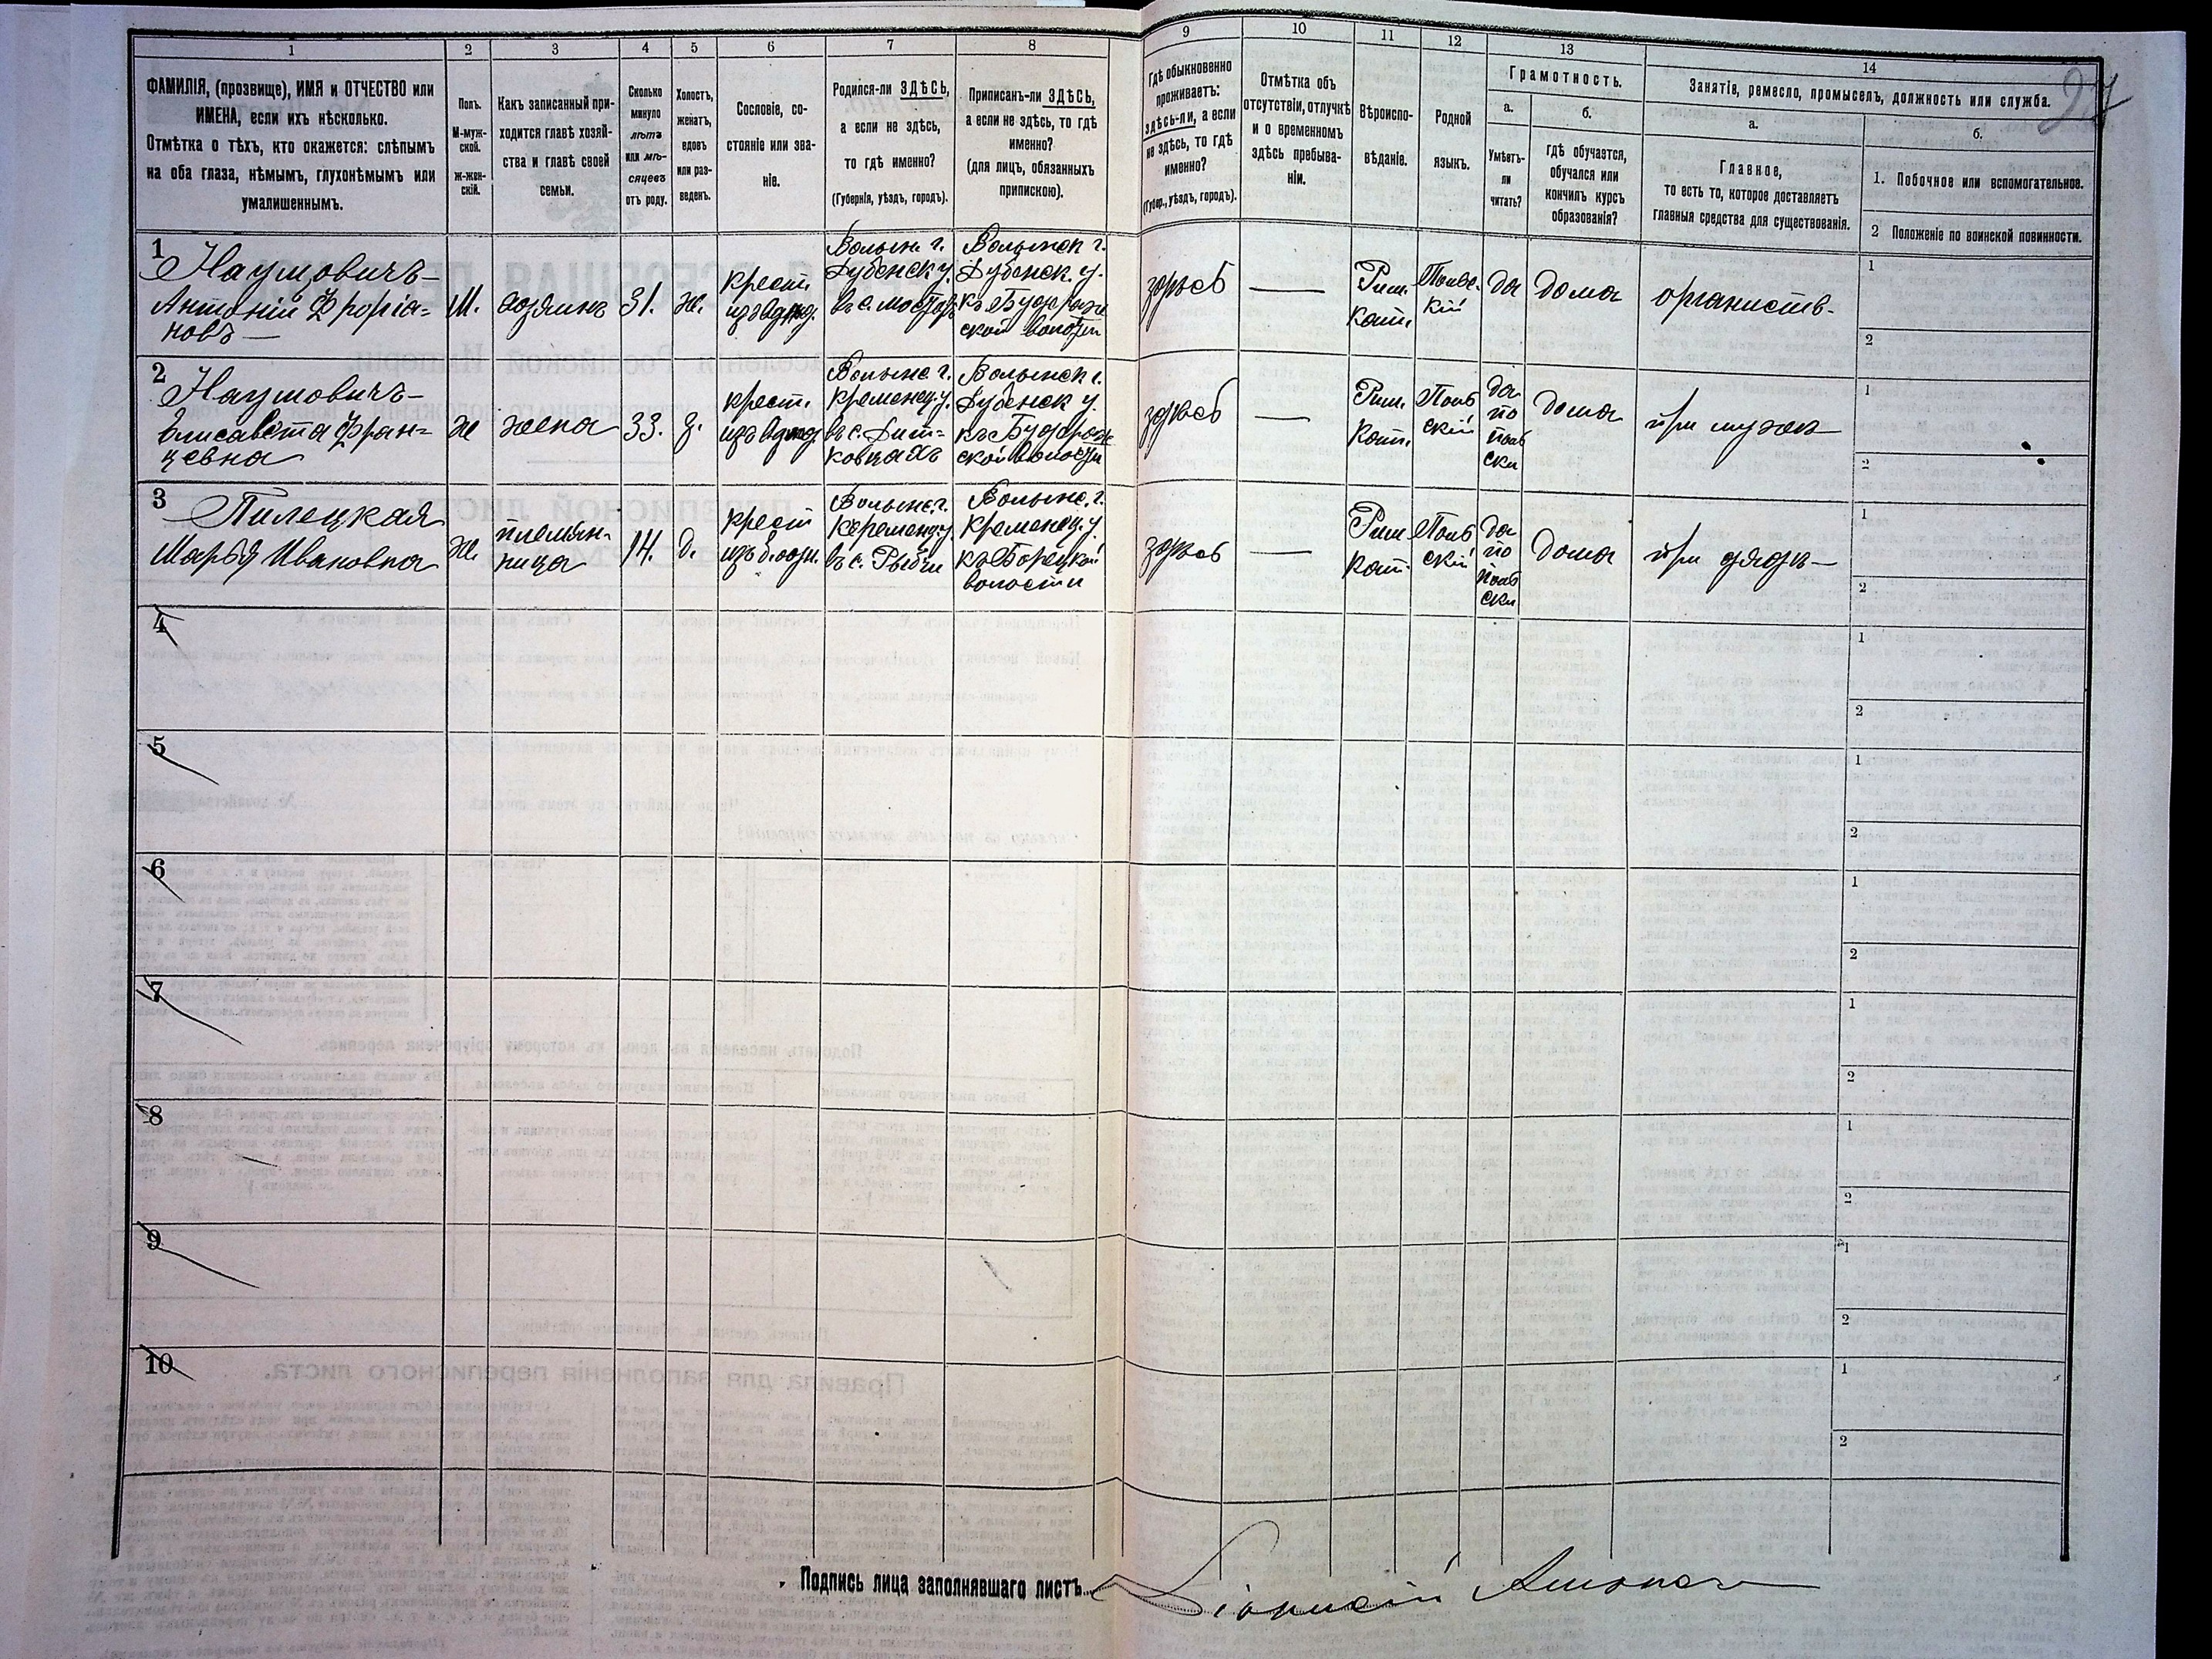 1
2
3
4
5
6
7
8
9
10
11
12
13
14
27
ФАМИЛІЯ, (прозвище), ИМЯ и ОТЧЕСТВО или
ИМЕНА, если ихъ нѣсколько.
Отмѣтка о тѣхъ, кто окажется: слѣпымъ
на оба глаза, нѣмымъ, глухонѣмымъ или
умалишеннымъ.
Полъ.
М-муж-
ской.
ж-жен-
скій.
Какъ записанный при-
ходится главѣ хозяй-
ства и главѣ своей
семьи.
Сколько
минуло
лѣтъ
или мѣ-
сяцевъ
отъ роду.
Холостъ,
женатъ,
вдовъ
или раз-
веденъ.
Сословіе, со-
стояніе или зва-
ніе.
Родился-ли ЗДѢСЬ,
а если не здѣсь,
то гдѣ именно?
(Губернія, уѣздъ, городъ).
Приписанъ-ли ЗДѢСЬ,
а если не здѣсь, то гдѣ
именно?
(для лицъ, обязанныхъ
припискою).
Гдѣ обыкновенно
проживаетъ:
здѣсь-ли, а если
не здѣсь, то гдѣ
именно?
(Губер., уѣздъ, городъ).
Отмѣтка объ
отсутствіи, отлучкѣ
и о временномъ
здѣсь пребыва-
ніи.
Вѣроиспо-
вѣданіе.
Родной
языкъ.
Грамотность.
а.
Умѣетъ-
ли
читать?
б.
гдѣ обучается,
обучался или
кончилъ курсъ
образованія?
Занятіе, ремесло, промыселъ, должность или служба.
а.
Главное,
то есть то, которое доставляетъ
главныя средства для существованія.
б.
1. Побочное или вспомогательное.
2 Положеніе по воинской повинности.
1
Наумовичъ
Антоній Флоріа=
новъ
М.
хозяинъ
31.
ж.
крест.
Волын. г.
Дубенск у.
Волынск г.
Дубенск. у.
ской волости
здѣсь
Рим.
кат.
Поль
скій
да
дома
органистъ
1
2
2
Наумовичъ
Елисавета Фран=
цевна
ж
жена
33.
з.
крест.
Волынс г.
Кременец. у.
Волынск г.
Дубенск у.
ской волости
здѣсь
Рим.
кат.
Поль
скій
да
по
поль
ски
дома
при мужѣ
1
2
3
Пилецкая
Марья Ивановна
ж.
племян-
ница
14.
д.
крест
Волынс. г.
Кременец. у.
въ с. Рыдчи
Волынс. г.
Кременец. у
волости
здѣсь
Рим
кат.
Поль
скій
да
по
поль
ски
дома
при дядѣ
1
2
4
1
2
5
1
2
6
1
2
7
1
2
8
1
2
9
1
2
10
1
2
Подпись лица заполнявшаго листъ